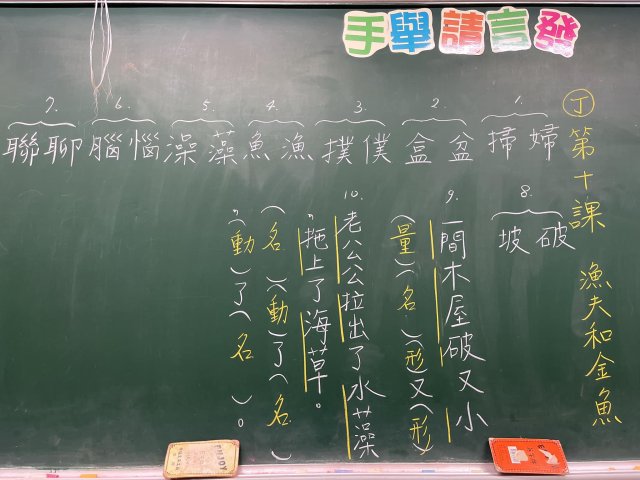 發言請舉手
丁 第十課 漁夫和金魚
1. 婦掃
2. 盆盒
3. 僕撲
4. 漁魚
5. 藻澡
6. 惱腦
7. 聊聯
8. 破坡
9. 一間木屋破又小
(量)(名)(形)又(形)
10. 老公公拉出了水藻
，拖上了海草。
(名)(動)了(名)
，(動)了(名)。